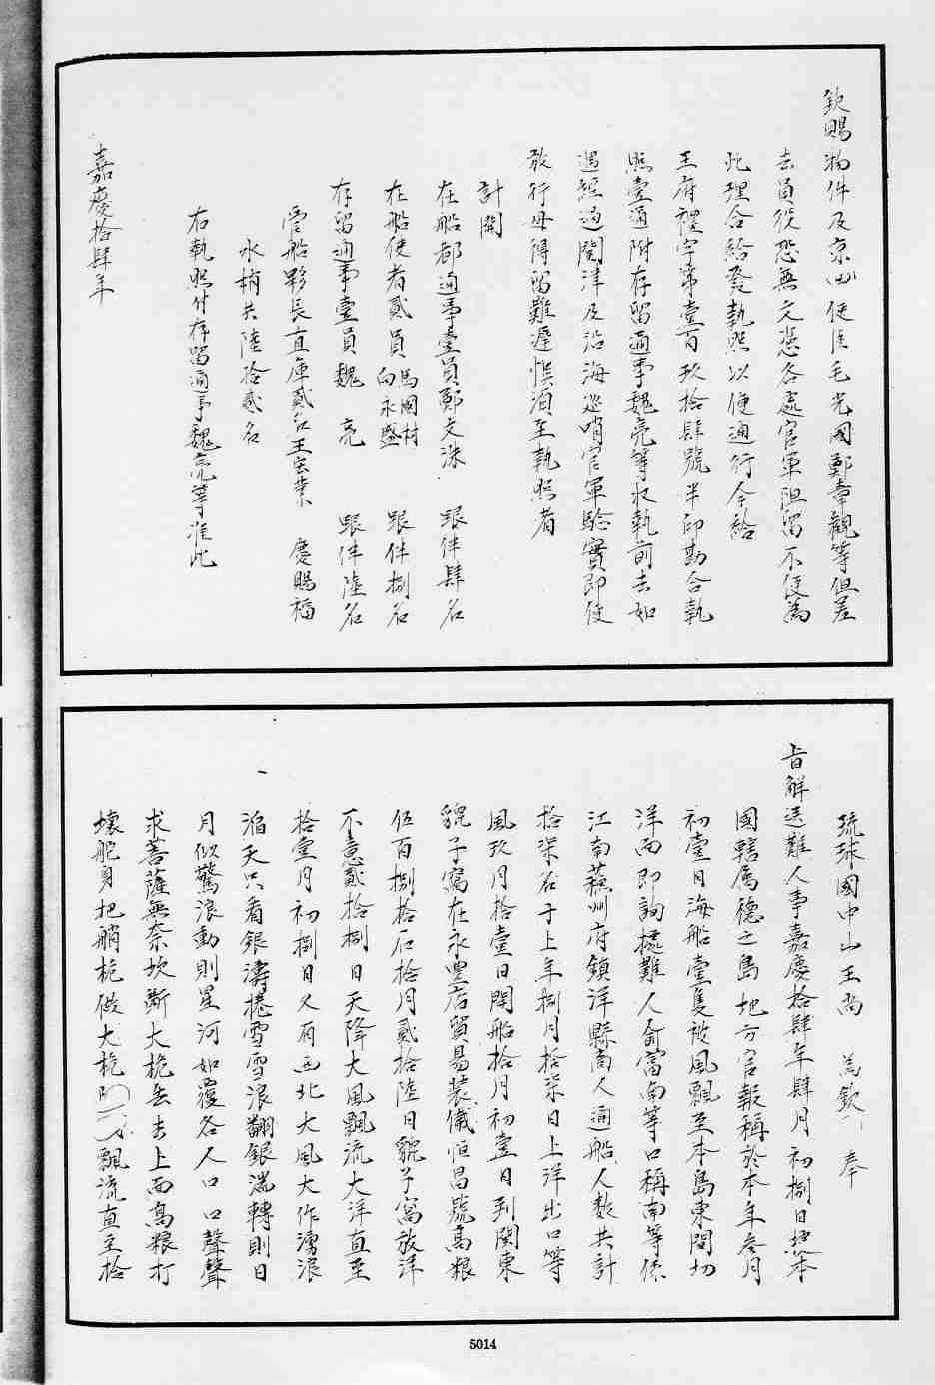 欽賜物件及京回使臣毛光國鄭章觀等但差
去員役恐無文憑各處官軍阻留不便為
此理合給發執照以便通行今給
王府禮字第壹百玖拾肆號半印勘合執
照壹通附存留通事魏亮等收執前去如
遇經過關津及沿海巡哨官軍驗實即使
放行毋得留難遲悞須至執照者
計開
在船都通事壹員鄭文洙 跟伴肆名
在船使者貳員馬國材向永盛 跟伴捌名
存留通事壹員魏亮 跟伴陸名
管船夥長直庫貳名王宏業 慶賜福
水梢共陸拾貳名
右執照付存留通事魏亮等准此
嘉慶拾肆年
琉球國中山王尚 為欽奉
旨解送難人事嘉慶拾肆年肆月初捌日據本
國轄屬德之島地方官報稱於本年叁月
初壹日海船壹隻被風飄至本島東間切
洋面即詢據難人俞富南等口稱南等係
江南蘇州府鎮洋縣商人通船人數共計
拾柒名于上年捌月拾柒日上洋出口等
風玖月拾壹日開船拾月初壹日到關東
貔子窩在永豐店貿易裝儀恒昌號高粮
伍百捌拾石拾月貳拾陸日貔子窩放洋
不意貳拾捌日天降大風飄流大洋直至
拾壹月初捌日又有西北大風大作湧浪
滔天只看銀濤捲雪雪浪翻銀湍轉則日
月似驚浪動則星河如覆各人口口聲聲
求菩薩無奈坎斷大桅丟去上面高粮打
壞舵身把艄桅做大桅 飄流直至拾
5014